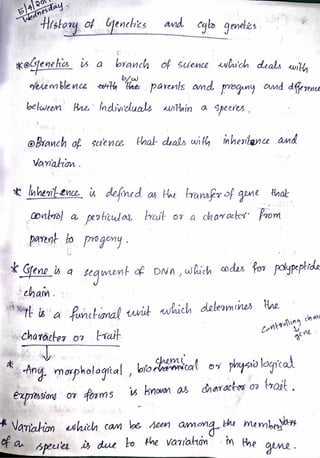 5/9/20
Wednesday
History of Genetics and cyto genetics
* ⊙ Genetics is a branch of science which deals with
resemblence b/w the parents and progeny and diffrence
between the Individuals within a species.
⊙ Branch of science that deals with inheritence and
Variation.
* Inheritence is defined as the transfer of gene that
control a perticular trait or a character from
parent to progeny.
* Gene is a segment of DNA, which codes for polypeptide
chain.
It is a functional unit which determines the
character or trait
Controlling
gene.
* Any morphological, biochemical or physiological
expressions or forms is known as character or trait.
* Variation which can be seen among the members
of a species is due to the variation in the gene.